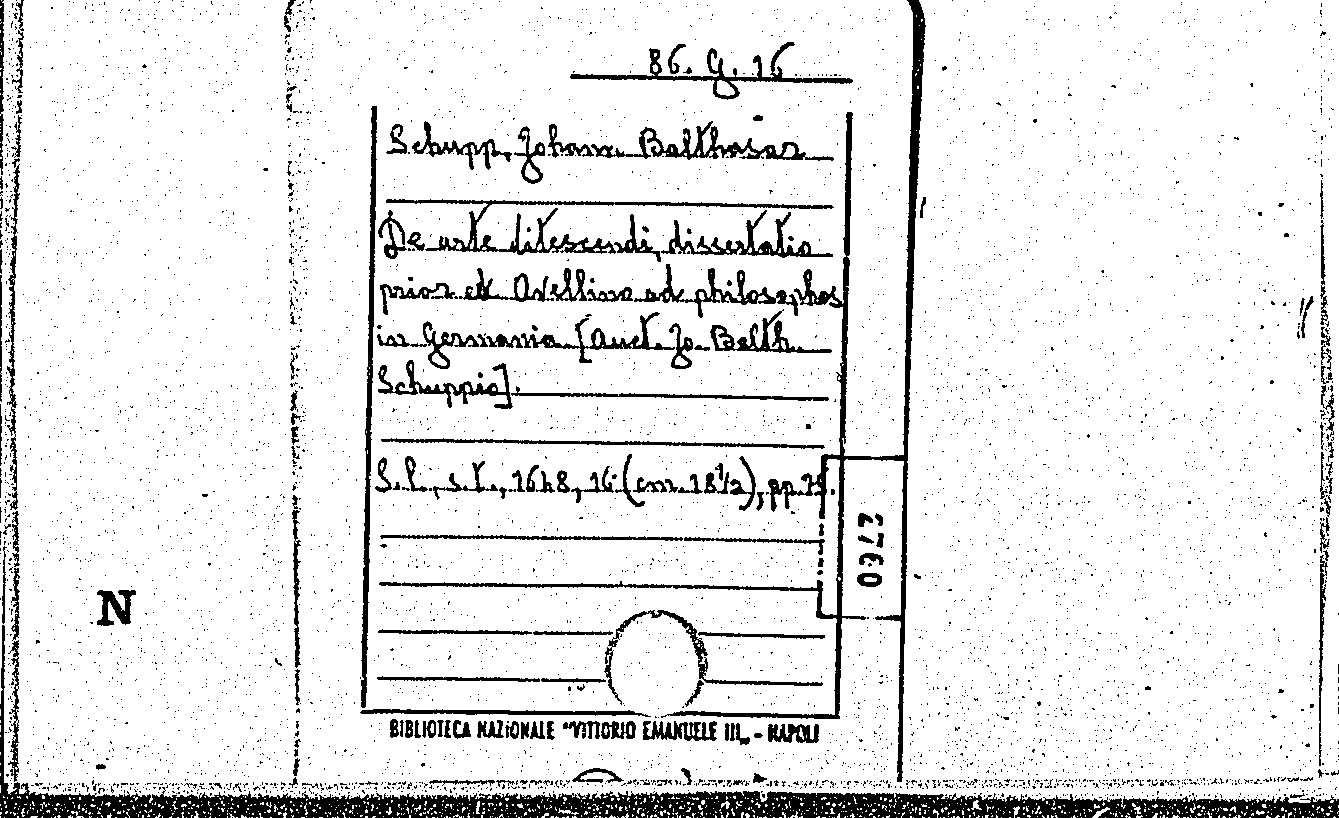 86. G. 16
Schupp, Johann Balthasar
De arte ditescendi, dissertatio
prior ex Avellino ad philosophos
in Germania [Auct. Jo. Balth.
Schuppio].
S. l., s. t., 1648, 16° (cm. 18½), pp.
2760
N
BIBLIOTECA NAZIONALE "VITTORIO EMANUELE III„ - NAPOLI